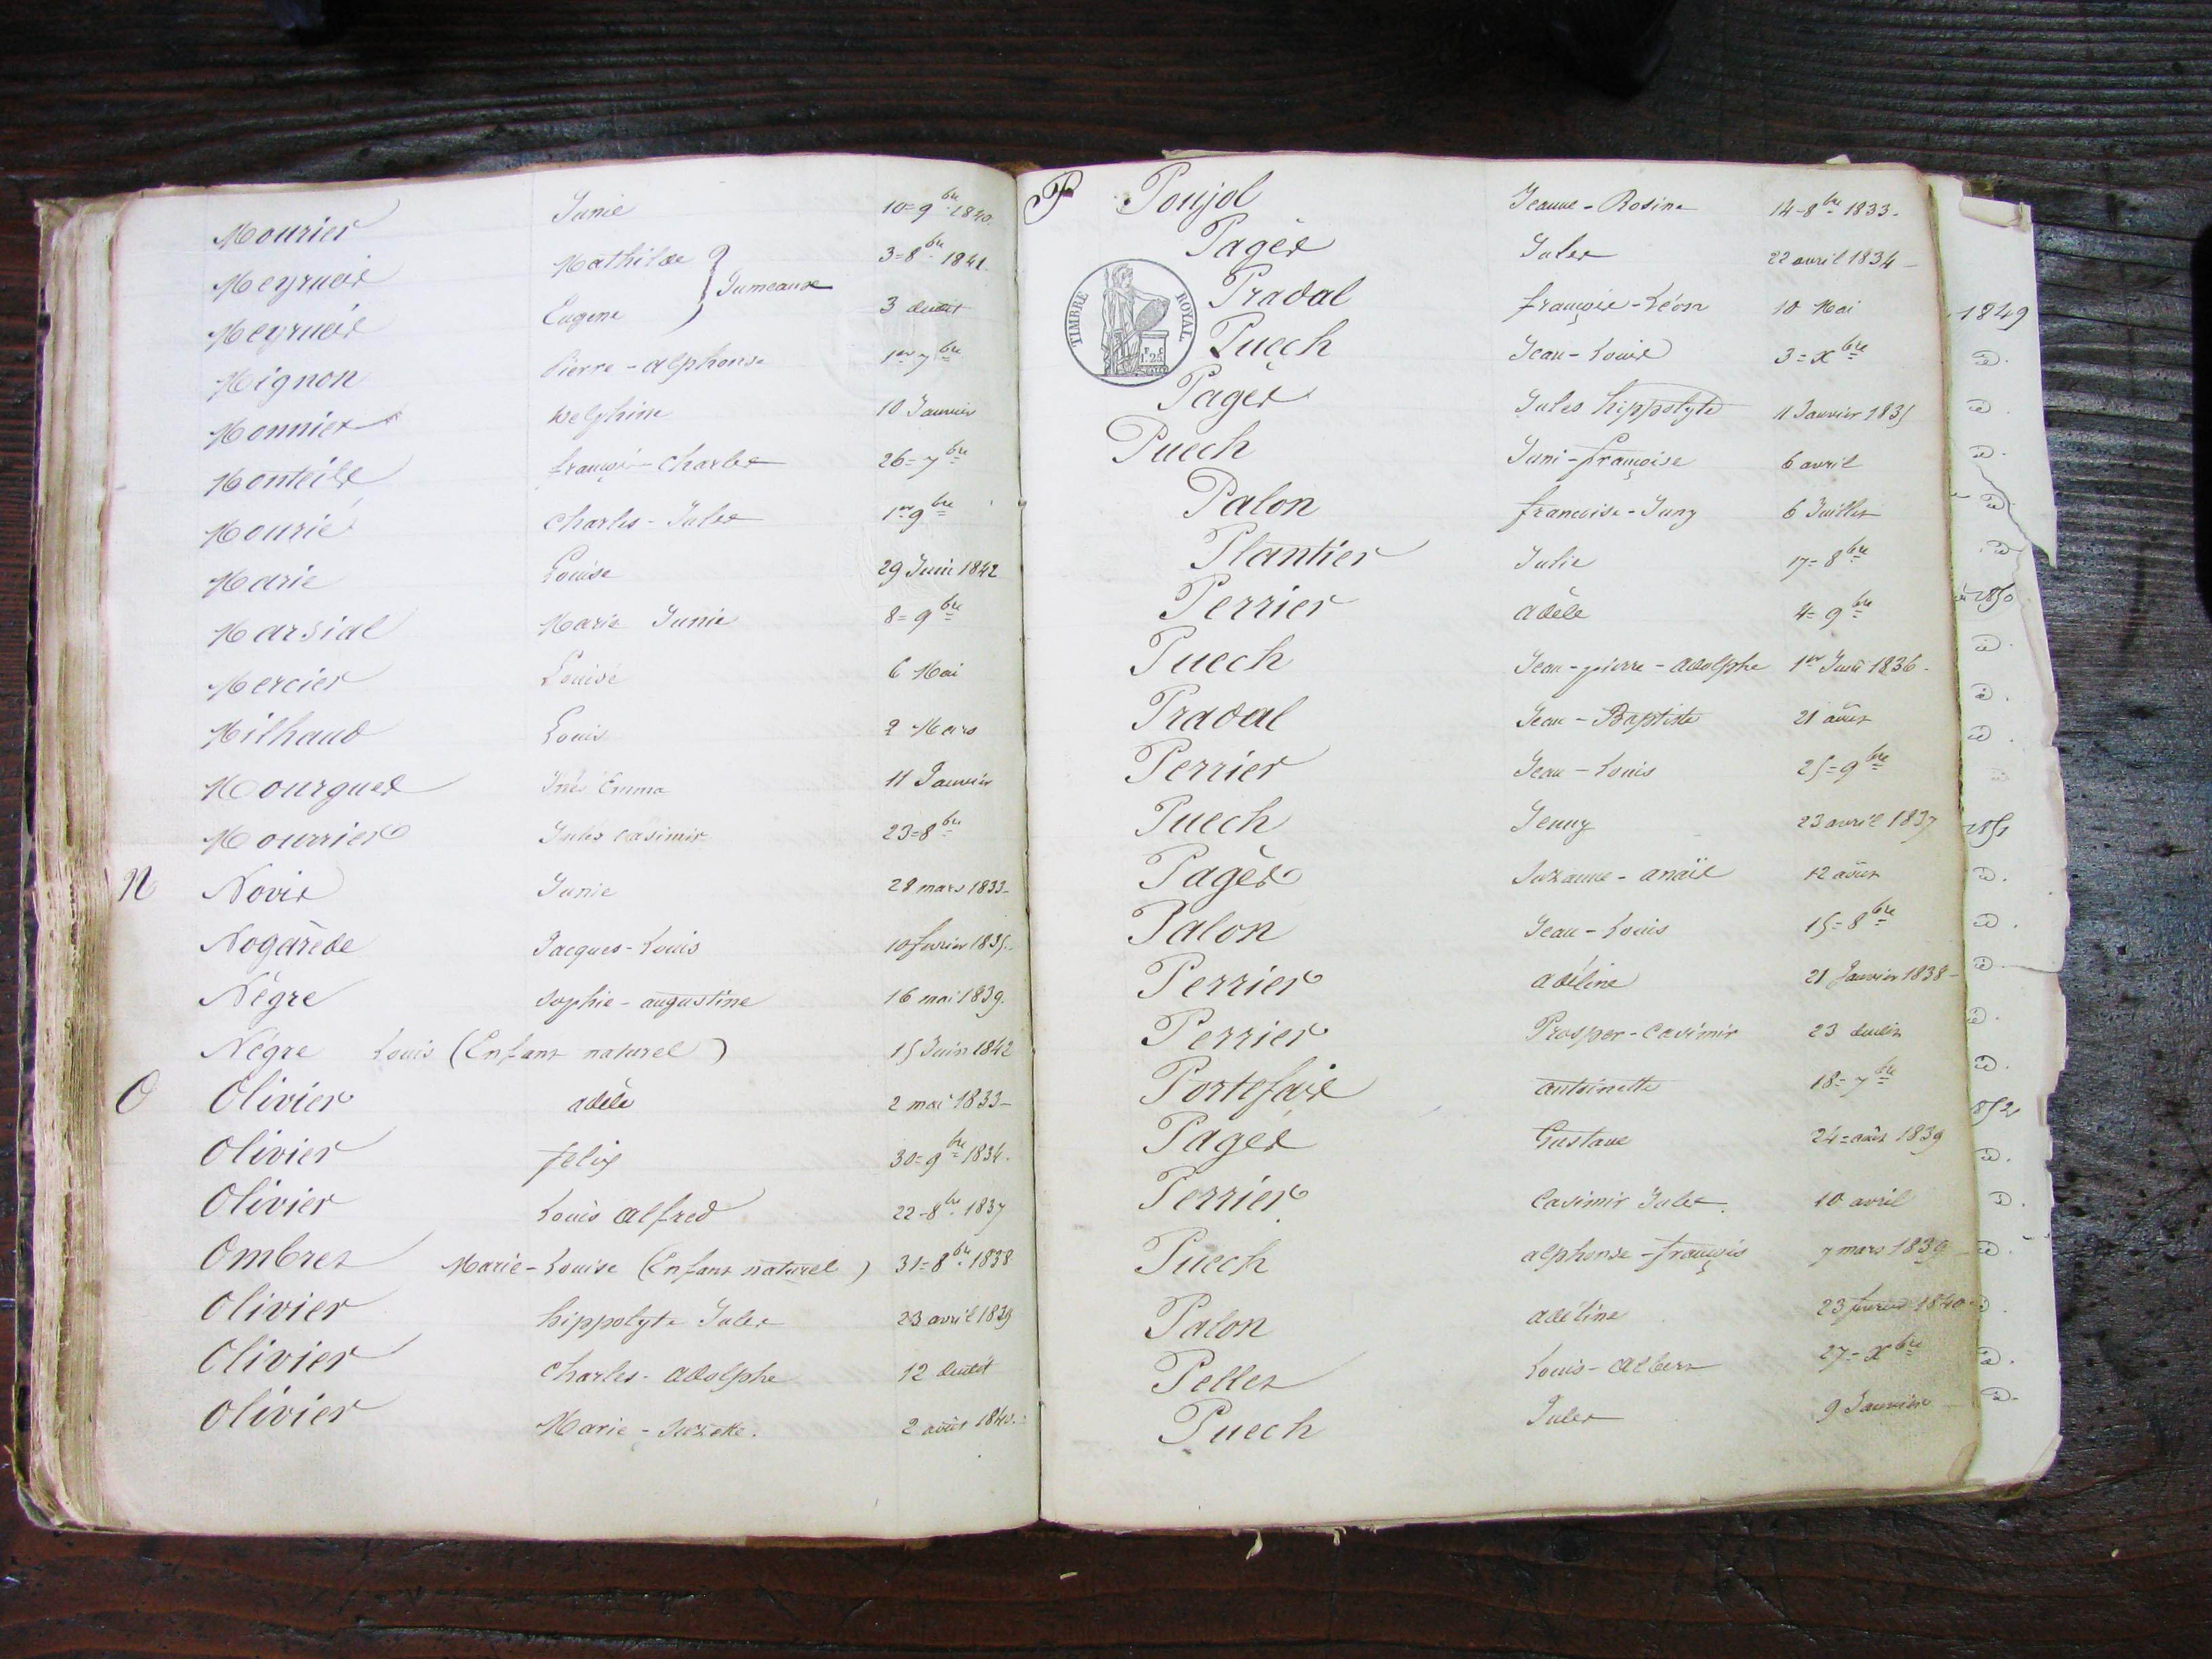 Mourier Junie 10=9bre 1840.
Meyrueis Mathilde 3=8bre 1841.
Jumeaux
Meyrueis Eugene 3 dudit
Mignon Pierre-alphonse 1er 7bre
Monnier Delphine 10 Janvier
Monteils françois-Charles 26=7bre
Mourié Charles-Jules 1er 9bre
Marie Louise 29 Juin 1842
Marsial Marie Junie 8=9bre
Mercier Louise 6 Mai
Milhaud Louis 2 Mars
Mourgues Inès Emma 11 Janvier
Mourrier Jules Casimir 23=8bre
N Novis Junie 28 mars 1833-
Nogarède Jacques-Louis 10 fevrier 1835.
Négre Sophie-augustine 16 mai 1839.
Négre Louis (Enfant naturel) 15 Juin 1842
O Olivier adèle 2 mai 1833-
Olivier felix 30=9bre 1834.
Olivier Louis alfred 22=8bre 1837
Ombres Marie-Louise (Enfant naturel) 31=8bre 1838
Olivier hippolyte Jules 23 avril 1839
Olivier Charles-adolphe 12 dudit
Olivier Marie-Suzette. 2 août 1840.
P Poujol Jeanne-Rosine 14-8bre 1833.
Pagès Jules 22 avril 1834-
TIMBRE ROYAL
Pradal françois-Léon 10 Mai
Puech Jean-Louis 3=xbre
Pagès Jules hippolyte 11 Janvier 1835
Puech Juni-françoise 6 avril
Palon francoise-Juny 6 Juillet
Plantier Julie 17=8bre
Perrier adèle 4=9bre
Puech Jean-pierre-adolphe 1er Juin 1836.
Pradal Jean-Baptiste 21 août
Perrier Jean-Louis 25=9bre
Puech Jenny 23 avril 1837
Pagès Suzanne-anaïs 12 août
Palon Jean-Louis 15=8bre
Perrier adéline 21 Janvier 1838-
Perrier Prosper-Casimir 23 dudit
Portefaix antoinette 18=7bre
Pagès Gustave 24=août 1839
Perrier Casimir Jules 10 avril
Puech alphonse-françois 7 mars 1839
Palon adéline 23 fevrier 1840
Pellet Louis-albert 27=xbre
Puech Jules 9 Janvier
1849
1850
1851
1852